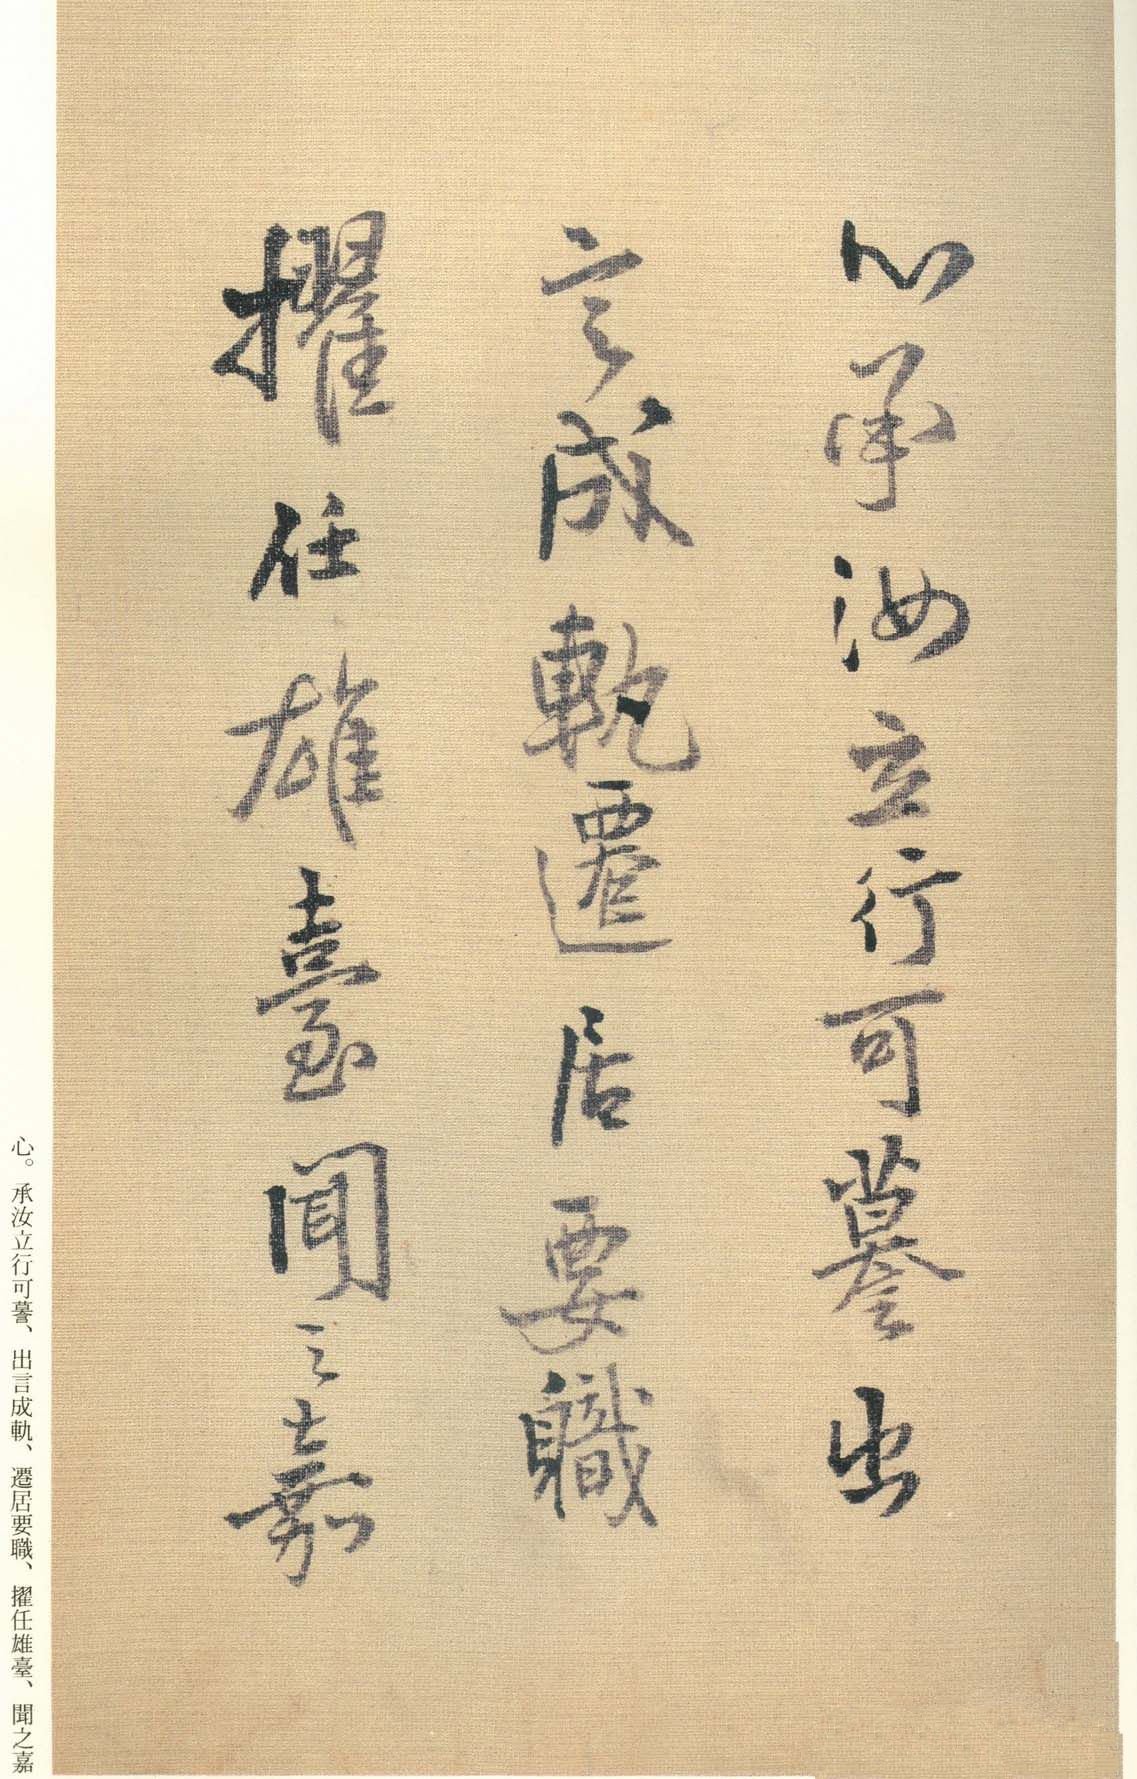 心承汝立行可謩出
言成軌遷居要職
擢任雄臺聞之嘉
心。承汝立行可謩、出言成軌、遷居要職、擢任雄臺、聞之嘉